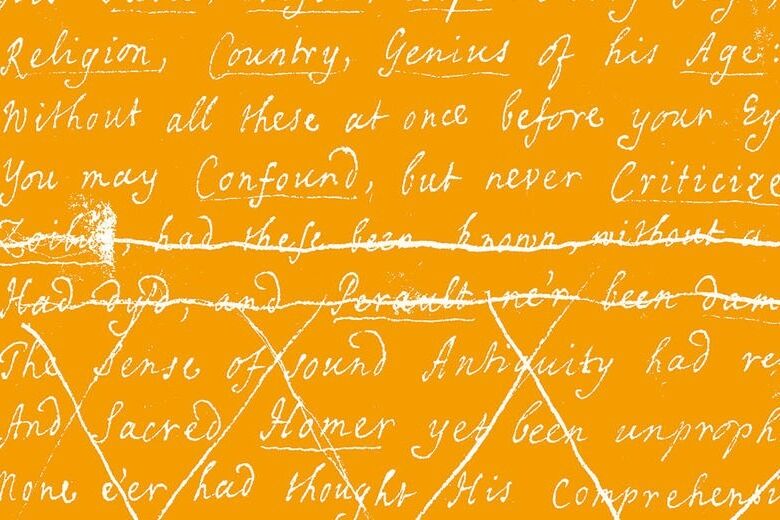 Religion, Country, Genius of his Age.
Without all these at once before your Ey
You may Confound, but never Criticize
Zoilus, had these been known, without a
Had dy'd, and Perault ne'r been dam
The Sense of sound Antiquity had re
And Sacred Homer yet been unproph
None e'er had thought His Comprehensi